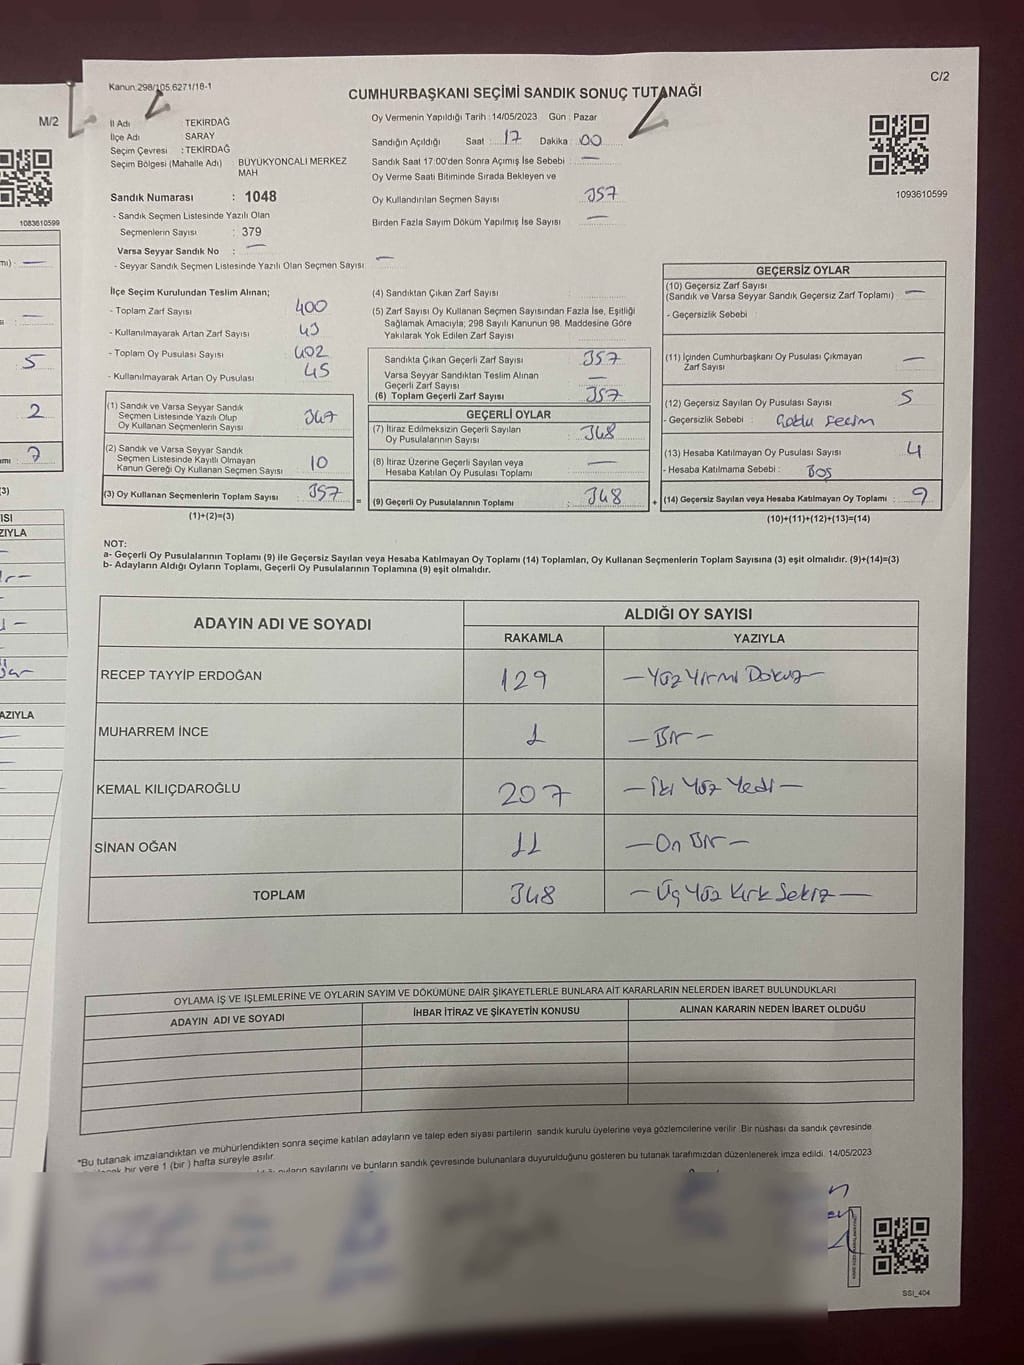 Kanun:298/105.6271/18-1
C/2
CUMHURBAŞKANI SEÇİMİ SANDIK SONUÇ TUTANAĞI
M/2
İl Adı TEKİRDAĞ
İlçe Adı SARAY
Seçim Çevresi : TEKİRDAĞ
Seçim Bölgesi (Mahalle Adı) BÜYÜKYONCALI MERKEZ
MAH
Sandık Numarası : 1048
- Sandık Seçmen Listesinde Yazılı Olan
Seçmenlerin Sayısı : 379
Varsa Seyyar Sandık No : —
- Seyyar Sandık Seçmen Listesinde Yazılı Olan Seçmen Sayısı: —
Oy Vermenin Yapıldığı Tarih : 14/05/2023 Gün : Pazar
Sandığın Açıldığı Saat : 17 Dakika : 00
Sandık Saat 17:00'den Sonra Açımış İse Sebebi : —
Oy Verme Saati Bitiminde Sırada Bekleyen ve
Oy Kullandırılan Seçmen Sayısı : 357
Birden Fazla Sayım Döküm Yapılmış İse Sayısı : —
1093610599
1083610599
İlçe Seçim Kurulundan Teslim Alınan;
- Toplam Zarf Sayısı : 400
- Kullanılmayarak Artan Zarf Sayısı : 43
- Toplam Oy Pusulası Sayısı : 402
- Kullanılmayarak Artan Oy Pusulası : 45
(1) Sandık ve Varsa Seyyar Sandık
Seçmen Listesinde Yazılı Olup
Oy Kullanan Seçmenlerin Sayısı : 347
(2) Sandık ve Varsa Seyyar Sandık
Seçmen Listesinde Kayıtlı Olmayan
Kanun Gereği Oy Kullanan Seçmen Sayısı : 10
(3) Oy Kullanan Seçmenlerin Toplam Sayısı : 357
(1)+(2)=(3)
(4) Sandıktan Çıkan Zarf Sayısı :
(5) Zarf Sayısı Oy Kullanan Seçmen Sayısından Fazla İse, Eşitliği
Sağlamak Amacıyla; 298 Sayılı Kanunun 98. Maddesine Göre
Yakılarak Yok Edilen Zarf Sayısı :
Sandıkta Çıkan Geçerli Zarf Sayısı : 357
Varsa Seyyar Sandıktan Teslim Alınan
Geçerli Zarf Sayısı : —
(6) Toplam Geçerli Zarf Sayısı : 357
GEÇERLİ OYLAR
(7) İtiraz Edilmeksizin Geçerli Sayılan
Oy Pusulalarının Sayısı : 348
(8) İtiraz Üzerine Geçerli Sayılan veya
Hesaba Katılan Oy Pusulası Toplamı : —
= (9) Geçerli Oy Pusulalarının Toplamı : 348
GEÇERSİZ OYLAR
(10) Geçersiz Zarf Sayısı
(Sandık ve Varsa Seyyar Sandık Geçersiz Zarf Toplamı) : —
- Geçersizlik Sebebi :
(11) İçinden Cumhurbaşkanı Oy Pusulası Çıkmayan
Zarf Sayısı : —
(12) Geçersiz Sayılan Oy Pusulası Sayısı : 5
- Geçersizlik Sebebi : Çoklu Seçim
(13) Hesaba Katılmayan Oy Pusulası Sayısı : 4
- Hesaba Katılmama Sebebi : Boş
+ (14) Geçersiz Sayılan veya Hesaba Katılmayan Oy Toplamı : 9
(10)+(11)+(12)+(13)=(14)
NOT:
a- Geçerli Oy Pusulalarının Toplamı (9) ile Geçersiz Sayılan veya Hesaba Katılmayan Oy Toplamı (14) Toplamları, Oy Kullanan Seçmenlerin Toplam Sayısına (3) eşit olmalıdır. (9)+(14)=(3)
b- Adayların Aldığı Oyların Toplamı, Geçerli Oy Pusulalarının Toplamına (9) eşit olmalıdır.
ADAYIN ADI VE SOYADI ALDIĞI OY SAYISI
RAKAMLA YAZIYLA
RECEP TAYYİP ERDOĞAN 129 — Yüz Yirmi Dokuz —
MUHARREM İNCE 1 — Bir —
KEMAL KILIÇDAROĞLU 207 — İki Yüz Yedi —
SİNAN OĞAN 11 — On Bir —
TOPLAM 348 — Üç Yüz Kırk Sekiz —
OYLAMA İŞ VE İŞLEMLERİNE VE OYLARIN SAYIM VE DÖKÜMÜNE DAİR ŞİKAYETLERLE BUNLARA AİT KARARLARIN NELERDEN İBARET BULUNDUKLARI
ADAYIN ADI VE SOYADI İHBAR İTİRAZ VE ŞİKAYETİN KONUSU ALINAN KARARIN NEDEN İBARET OLDUĞU
*Bu tutanak imzalandıktan ve mühürlendikten sonra seçime katılan adayların ve talep eden siyasi partilerin sandık kurulu üyelerine veya gözlemcilerine verilir. Bir nüshası da sandık çevresinde
bir yere 1 (bir) hafta süreyle asılır.
sayılarını ve bunların sandık çevresinde bulunanlara duyurulduğunu gösteren bu tutanak tarafımızdan düzenlenerek imza edildi. 14/05/2023
SSI_404
5
2
7
YAZIYLA